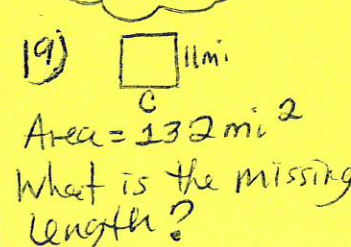 19)
11mi
C
Area = 132 mi²
What is the missing
length?